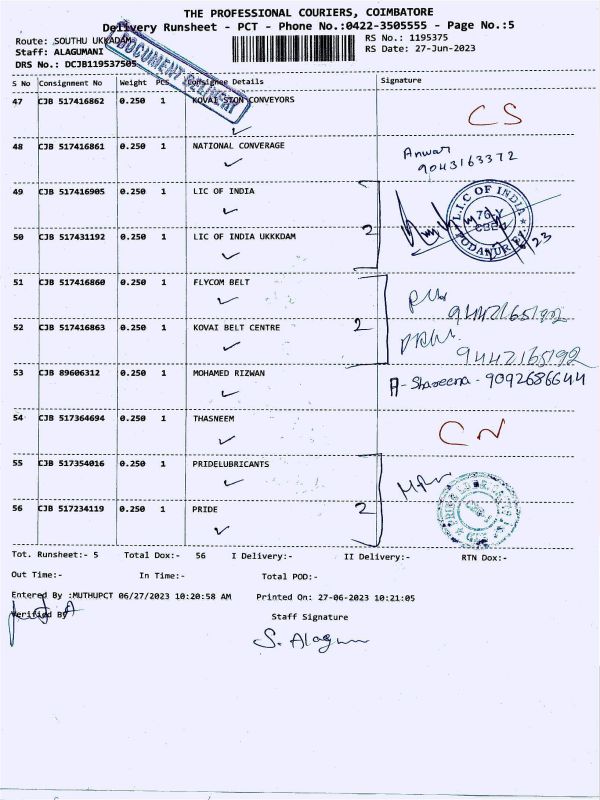 THE PROFESSIONAL COURIERS, COIMBATORE
Delivery Runsheet - PCT - Phone No.:0422-3505555 - Page No.:5
Route: SOUTHU UKKADAM
RS No.: 1195375
Staff: ALAGUMANI
RS Date: 27-Jun-2023
DRS No.: DCJB119537505
DOCUMENT DELIVERY
S No Consignment No Weight PCS Consignee Details Signature
47 CJB 517416862 0.250 1 KOVAI STON CONVEYORS CS
48 CJB 517416861 0.250 1 NATIONAL CONVERAGE Anwar
9043163372
49 CJB 517416905 0.250 1 LIC OF INDIA
L.I.C OF INDIA
2
50 CJB 517431192 0.250 1 LIC OF INDIA UKKKDAM
51 CJB 517416860 0.250 1 FLYCOM BELT
9442165192
2
52 CJB 517416863 0.250 1 KOVAI BELT CENTRE
9442165192
53 CJB 89606312 0.250 1 MOHAMED RIZWAN A- Shareena - 9092686644
54 CJB 517364694 0.250 1 THASNEEM CN
55 CJB 517354016 0.250 1 PRIDELUBRICANTS
2
56 CJB 517234119 0.250 1 PRIDE
Tot. Runsheet:- 5 Total Dox:- 56 I Delivery:- II Delivery:- RTN Dox:-
Out Time:- In Time:- Total POD:-
Entered By :MUTHUPCT 06/27/2023 10:20:58 AM Printed On: 27-06-2023 10:21:05
Verified By
Staff Signature
S. Alagum